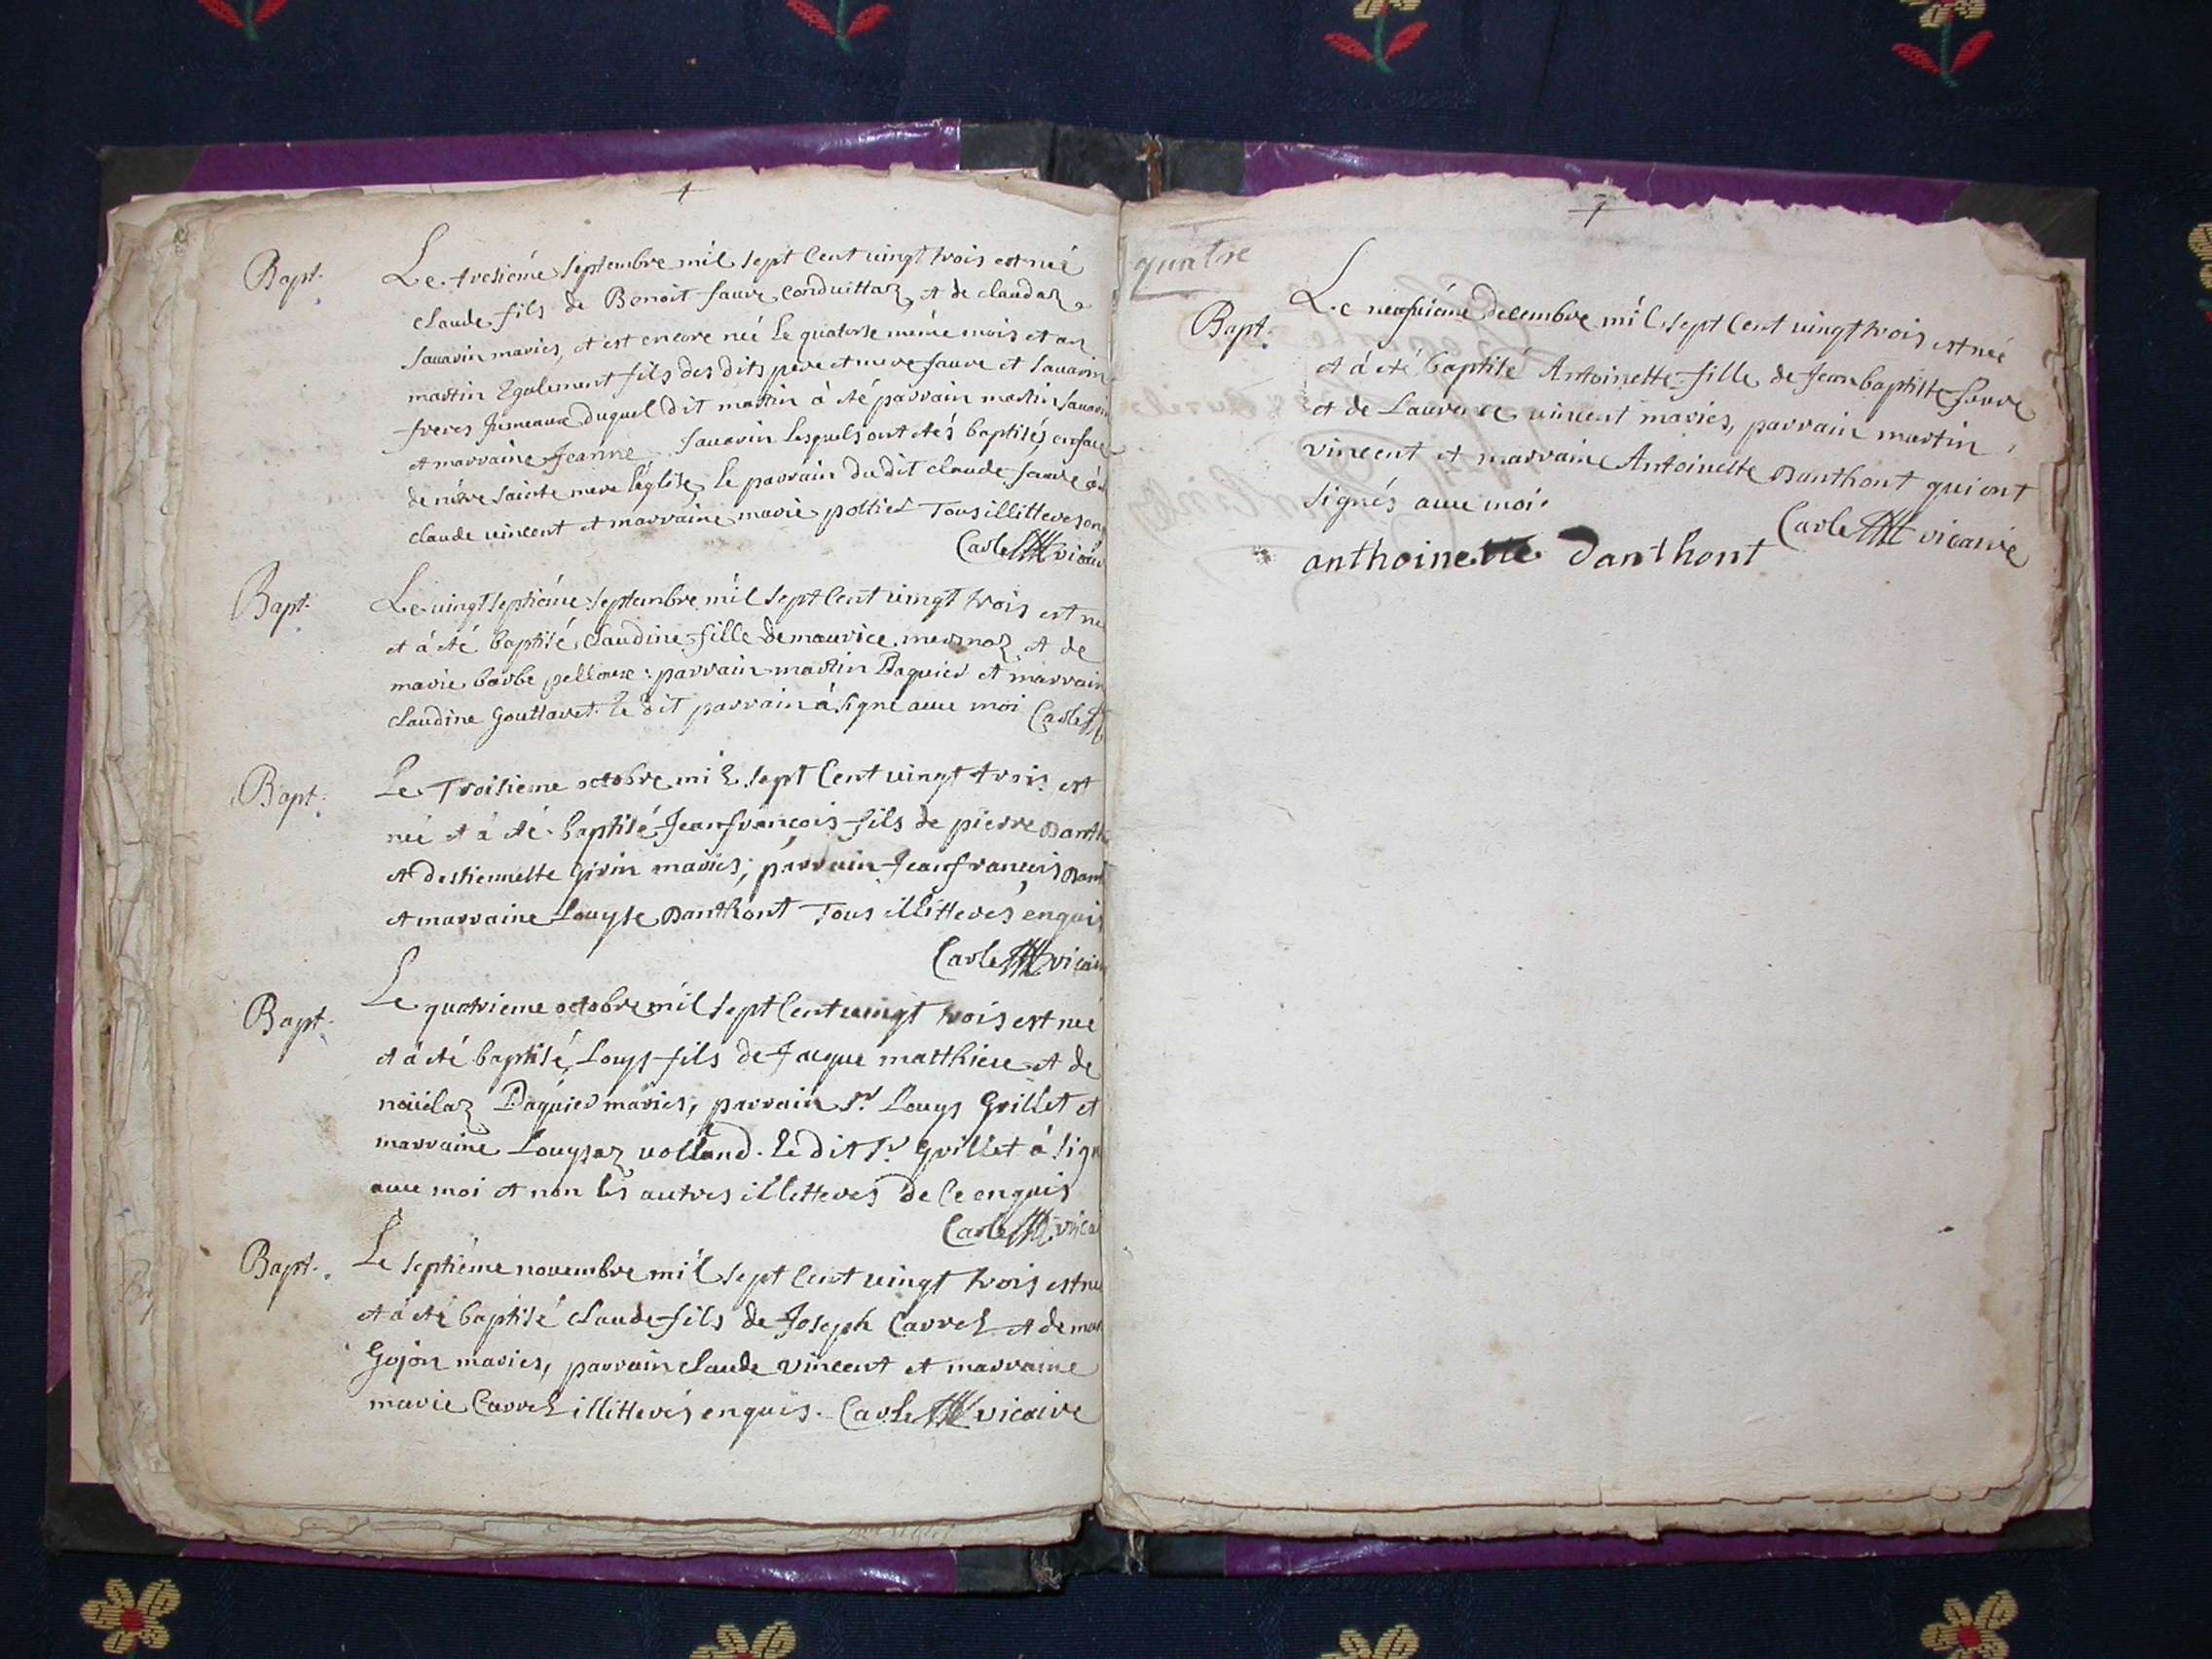 Bapt. Le tresiéme septembre mil sept cent uingt trois est née
claude fils de Benoit fauvre conduittaz, et de claudaz
sauarin mariés, et est encore née le quatorse même mois et an
martin Egalement fils des dits pere et mere fauvre et sauarin
freres Jumeaux duquel dit martin à été parrain martin sauarin
et marraine Jeanne sauarin lesquels ont étés baptisés, en face
de nôtre sainte mere l'église, le parrain du dit claude fauvre
claude uincent et marraine marie pottier Tous illitteres
Carle vicair
Bapt. Le uingt septiéme septembre mil sept cent uingt trois est né
et à été baptisé claudine fille de maurice mermoz, et de
marie barbe pelloux: parrain martin Daquier et marrain
claudine Gouttaret. le dit parrain à signé auec moi Carle
Bapt. Le Troisieme octobre mil sept cent uingt trois est
née et à été baptisé Jeanfrançois fils de pierre Danth
et destiennette Girin mariés; parrain Jeanfrancois Dant
et marraine Louyse Danthont Tous illitterés enquis
Carle vicair
Bapt. Le quatrieme octobre mil sept cent uingt trois est née
et à été baptisé, Louys fils de Jaque matthieu et de
nouelaz Daquier mariés, parrain Sr. Louys Grillet et
marraine Louysaz uolland. le dit Sr. Grillet à sign
auec moi et non les autres illitteres de ce enquis
Carle vica
Bapt. Le septiéme nouembre mil sept cent uingt trois est né
et à été baptisé claude fils de Joseph Carrel et de mar
Gojon mariés, parrain claude vincent et marraine
marie Carrel illitterés enquis. Carle vicaire
quatre
Bapt. Le neufuiéme decembre mil sept cent uingt trois est née
et à été baptisé Antoinette fille de Jean baptiste fauvre
et de Laurence uincent mariés, parrain martin
vincent et marraine Antoinette Danthont qui ont
signés auec moi.
Carle vicaire
anthoinette danthont